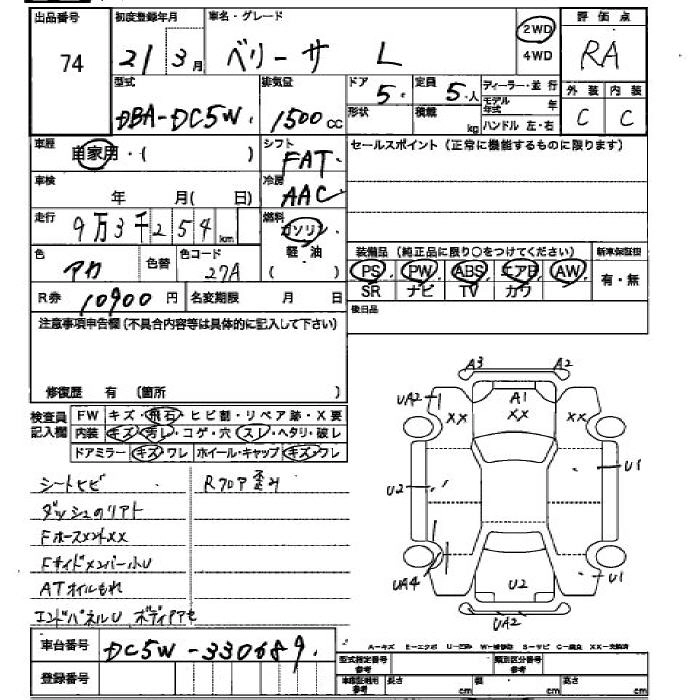 出品番号 初度登録年月 車名・グレード 評価点
74 21 3月 ベリーサ L 2WD 4WD RA
型式 排気量 ドア 5. 定員 5.人 ディーラー・並行 外装 内装
DBA-DC5W. 1500cc 形状 積載 kg モデル年式 年 C C
ハンドル 左・右
車歴 自家用・( ) シフト FAT. セールスポイント(正常に機能するものに限ります)
車検 年 月( 日) 冷房 AAC
走行 9万3千254km 燃料 ガソリン 軽油 ( )
色 アカ 色替 色コード 27A
装備品(純正品に限り〇をつけてください) 新車保証書
PS PW ABS エアB AW 有・無
SR ナビ TV カワ
R券 10900円 名変期限 月 日 後日品
注意事項申告欄(不具合内容等は具体的に記入して下さい)
修復歴 有 (箇所 )
検査員記入欄 FW キズ・飛石・ヒビ割・リペア跡・X要
内装 キズ・汚レ・コゲ・穴・スレ・ヘタリ・破レ
ドアミラー キズ・ワレ ホイール・キャップ キズ・ワレ
シートヒビ Rフロア歪み
ダッシュのリアト
FホースメントXX
Fサイドメンバー小U
ATオイルもれ
エンドパネルU ボディアアセ
A3 A2
UA2 A1
XX XX XX
U2 U1
UA4 U2 U1
UA2
車台番号 DC5W-330689.
登録番号
A－キズ E－エクボ U－凹み W－補修跡 S－サビ C－腐食 XX－交換済
型式指定番号参考 類別区分番号参考
車庫証明用参考 長さ cm 幅 cm 高さ cm